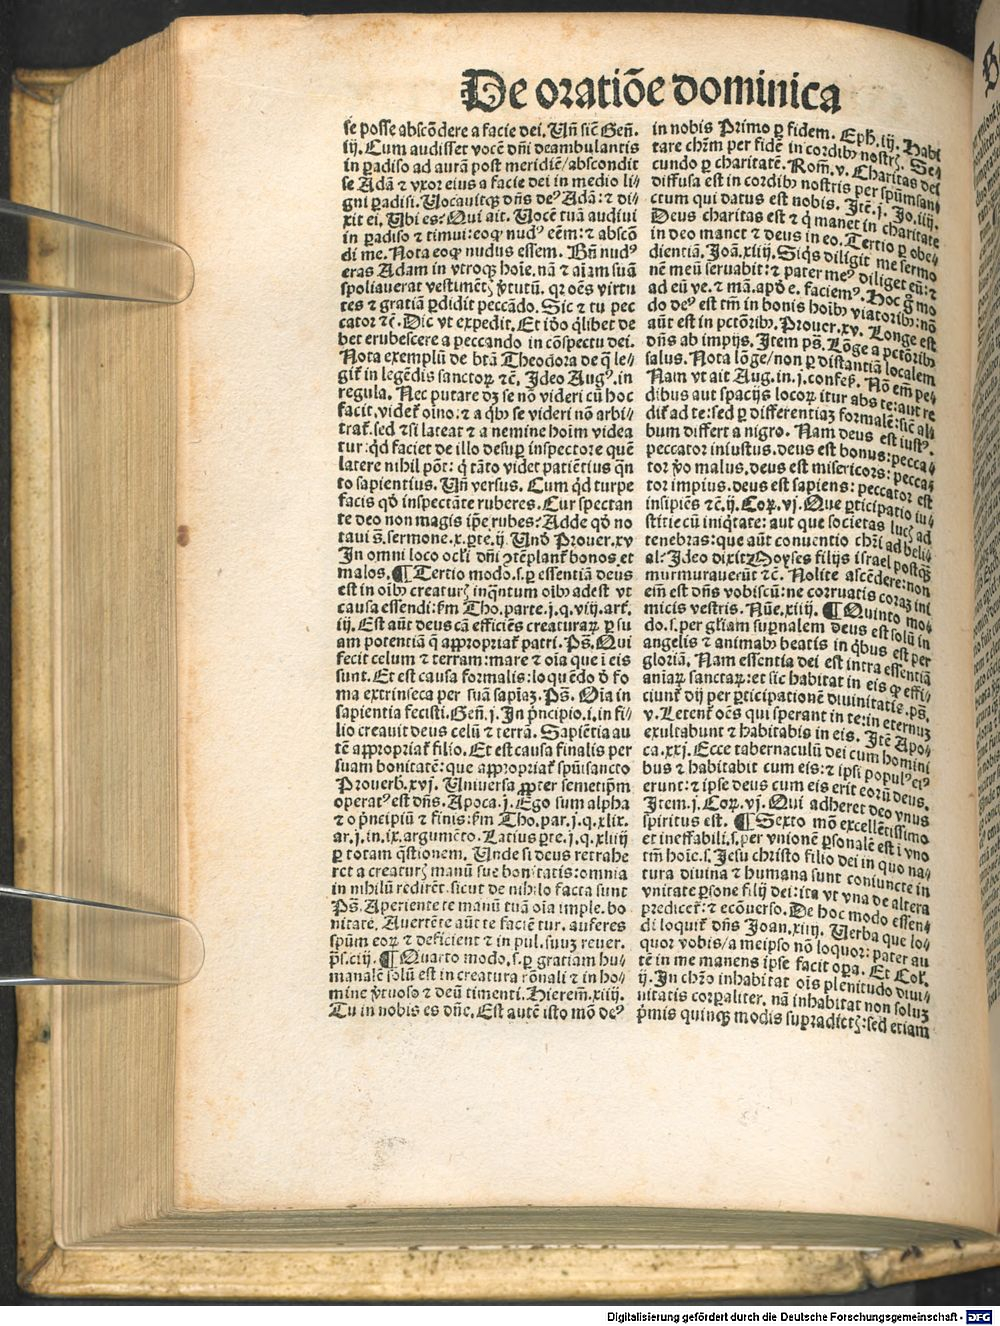 De oratiõe dominica
se posse abscõdere a facie dei. Uñ sic̃ Geñ.
iij. Cum audisset vocẽ dñi deambulantis
in ꝑadiso ad aurã post meridiẽ/abscondit
se Adã ⁊ vxor eius a facie dei in medio li-
gni ꝑadisi. Uocauitqꝫ dñs deꝰ Adã: ⁊ di-
xit ei. Ubi es? Qui ait. Uocẽ tuã audiui
in ꝑadiso ⁊ timui: eoqꝫ nudꝰ eẽm: ⁊ abscõ
di me. Nota eoqꝫ nudus essem. Bñ nudꝰ
eras Adam in vtroqꝫ hoĩe. nã ⁊ aĩam suã
spoliauerat vestimẽtꝭ v̾tutũ. qꝛ oẽs virtu
tes ⁊ gratiã ꝑdidit peccãdo. Sic ⁊ tu pec
cator ⁊c̃. Dic vt expedit. Et iõo q̃libet de
bet erubescere a peccando in cõspectu dei.
Nota exemplũ de btã Theodora de q̃ le-
git̃ in legẽdis sanctoꝝ ⁊c̃. Ideo Augꝰ. in
regula. Nec putare dꝫ se nõ videri cũ hoc
facit. videt̃ oĩno: ⁊ a qͥbꝰ se videri nõ arbi-
trat̃. sed ⁊ si lateat ⁊ a nemine hoĩm videa
tur: qͥd faciet de illo desuꝑ inspectore quẽ
latere nihil põt: q̃ tãto videt patiẽtius q̃n
to sapientius. Uñ versus. Cum qͥd turpe
facis qđ inspectãte ruberes. Cur spectan
te deo non magis ip̃e rubes? Adde qđ no
taui s̃. sermone. x. ꝑte. ij. Unđ Prouer. xv
In omni loco ocl̃i dñi ꝯtẽplant̃ bonos et
malos. ¶ Tertio modo. s. ꝑ essentiã deus
est in oĩbꝰ creaturꝭ inq̃ntum oĩbꝰ adest vt
causa essendi: ẜm Tho. parte. j. q. viij. art̃.
iij. Est aũt deus cã efficiẽs creaturaꝝ ꝑ su
am potentiã q̃ appropriat̃ patri. Pſ̃. Qui
fecit celum ⁊ terram: mare ⁊ oĩa que ĩ eis
sunt. Et est causa formalis: loquẽdo đ fo
ma extrinseca per suã sapĩaꝫ. Pſ̃. Oĩa in
sapientia fecisti. Geñ. j. In pͥncipio. i. in fi-
lio creauit deus celũ ⁊ terrã. Sapiẽtia au
tẽ appropriat̃ filio. Et est causa finalis per
suam bonitatẽ: que appropriat̃ spũisancto
Prouerb. xvj. Uniuersa ꝓpter semetip̃m
operatꝰ est dñs. Apoca. j. Ego sum alpha
⁊ o pͥncipiũ ⁊ finis: ẜm Tho. par. j. q. xlix.
ar. j. in. ix. argumẽto. Latius ꝑte. j. q. xliiij
ꝑ totam q̃stionem. Unde si deus retrahe
ret a creaturꝭ manũ sue bonitatis: omnia
in nihilũ redirẽt. sicut de nihilo facta sunt
Pſ̃. Aperiente te manũ tuã oĩa imple. bo
nitate. Auertẽte aũt te faciẽ tur. auferes
spũm eoꝝ ⁊ deficient ⁊ in pul. suuꝫ reuer.
pſ̃. ciij. ¶ Quarto modo. s. ꝑ gratiam hu-
manalẽ solũ est in creatura rõnali ⁊ in ho-
mine v̾tuoso ⁊ deũ timenti. Hierem̃. xiiij.
Tu in nobis es dñe. Est autẽ isto mõ deꝰ
in nobis Primo ꝑ fidem. Eph̃. iij. Habi
tare chr̃m per fidẽ in cordibꝰ nostrꝭ. Se-
cundo ꝑ charitatẽ. Rom̃. v. Charitas dei
diffusa est in cordibꝰ nostris per spũmsan
ctum qui datus est nobis. Itẽ. j. Jo. iiij.
Deus charitas est ⁊ qͥ manet in charitate
in deo manet ⁊ deus in eo. Tertio ꝑ obe-
dientiã. Joã. xiiij. Siqͥs diligit me sermo
nẽ meũ seruabit: ⁊ pater meꝰ diliget eũ: ⁊
ad eũ ve. ⁊ mã. apđ e. faciemꝰ. Hoc g̃ mo
do deꝰ est tm̃ in bonis hoĩbꝰ viatoribꝰ: nõ
aũt est in pctõribꝰ. Prouer. xv. Longe est
dñs ab impijs. Item pſ̃. Lõge a pctõribꝰ
salus. Nota lõge/non ꝑ distantiã localem
Nam vt ait Aug. in. j. confeſ̃. Nõ em̃ pe-
dibus aut spacijs locoꝝ itur abs te: aut re
dit̃ ad te: sed ꝑ differentiaꝫ formalẽ: sic̃ al-
bum differt a nigro. Nam deus est iustꝰ.
peccator iniustus. deus est bonus: pecca-
tor v̾o malus. deus est misericors: pecca-
tor impius. deus est sapiens: peccator est
insipiẽs ⁊c̃. ij. Coꝝ. vj. Que ꝑticipatio iu-
stitie cũ iniqͥtate: aut que societas lucꝭ ad
tenebras: que aũt conuentio chr̃i ad beli-
al? Ideo dixit Moyses filijs israel postq̃ꝫ
murmurauerũt ⁊c̃. Nolite ascẽdere: non
em̃ est dñs vobiscũ: ne corruatis coraꝫ ini
micis vestris. Nũe. xiiij. ¶ Quinto mo-
do. s. per gl̃iam suꝑnalem deus est solũ in
angelis ⁊ animabꝰ beatis in qͥbus est per
gloriã. Nam essentia dei est intra essentiã
aniaꝝ sanctaꝝ: et sic habitat in eis qꝫ effi-
ciunt̃ dij per ꝑticipationẽ diuinitatis. pſ̃.
v. Letent̃ oẽs qui sperant in te: in eternuꝫ
exultabunt ⁊ habitabis in eis. Itẽ Apo-
ca. xxj. Ecce tabernaculũ dei cum homini
bus ⁊ habitabit cum eis: ⁊ ipsi populꝰ eiꝰ
erunt: ⁊ ipse deus cum eis erit eoꝝ deus.
Item. j. Coꝝ. vj. Qui adheret deo vnus
spiritus est. ¶ Sexto mõ excellẽtissimo
et ineffabili. s. per vnionẽ ꝑsonalẽ est ĩ vno
tm̃ hoĩe. s. Jesu christo filio dei in quo na-
tura diuina ⁊ humana sunt coniuncte in
vnitate ꝑsone filij dei: ita vt vna de altera
predicet̃: ⁊ ecõuerso. De hoc modo essen-
di loquit̃ dñs Joan. xiiij. Uerba que lo-
quor vobis/a meipso nõ loquor: pater au
tẽ in me manens ipse facit oꝑa. Et Col̃.
ij. In chr̃o inhabitat oĩs plenitudo diui-
nitatis corꝑaliter. nã inhabitat non soluꝫ
pͥmis quinqꝫ modis supradictꝭ: sed etiam
Digitalisierung gefördert durch die Deutsche Forschungsgemeinschaft - DFG